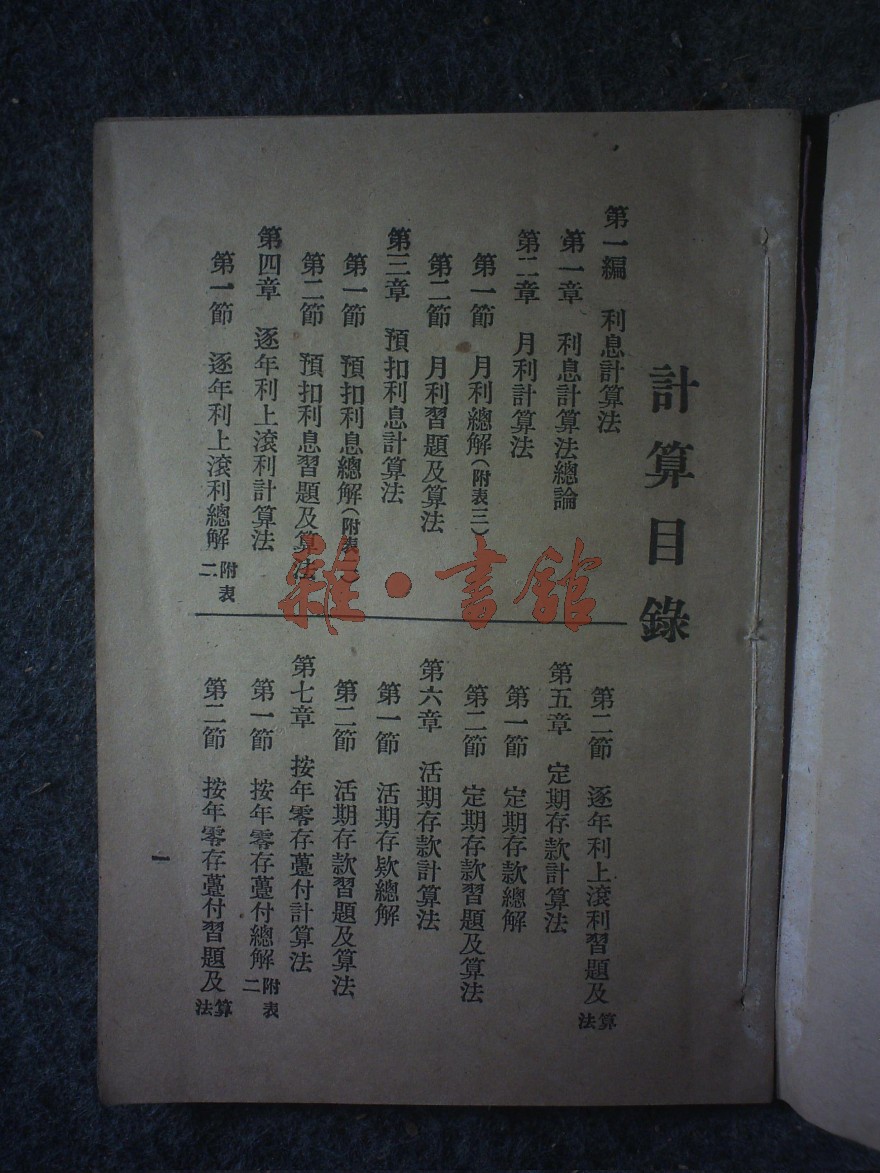 計算目錄
第一編　利息計算法
第一章　利息計算法總論
第二章　月利計算法
第一節　月利總解(附表三)
第二節　月利習題及算法
第三章　預扣利息計算法
第一節　預扣利息總解(附表
第二節　預扣利息習題及算法
第四章　逐年利上滚利計算法
第一節　逐年利上滚利總解附表二
第二節　逐年利上滚利習題及算法
第五章　定期存款計算法
第一節　定期存款總解
第二節　定期存款習題及算法
第六章　活期存款計算法
第一節　活期存欵總解
第二節　活期存款習題及算法
第七章　按年零存躉付計算法
第一節　按年零存躉付總解附表二
第二節　按年零存躉付習題及算法
一
雜·書館